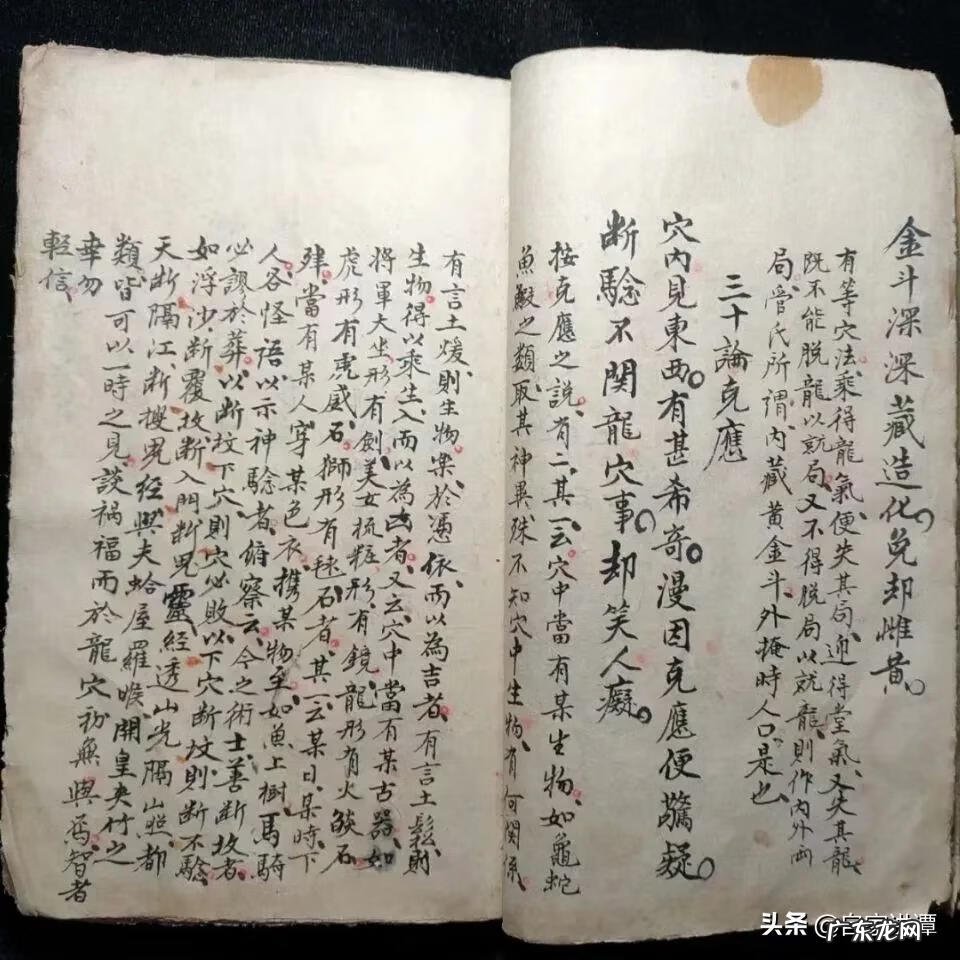 金斗深深藏造化免却惟黄
有等穴法乘得龍氣便失其局迎得堂氣又失其龍
既不能脱龍以就局又不得脱局以就龍則作内外兩
局管氏所謂内藏黄金斗外掩時人口是也
三十論克應
穴内見東西有甚希奇漫因克應便驚疑
断驗不関龍穴事却笑人癡
按克應之説有二其一云穴中當有某生物如龜蛇
魚鰕之類取其神異殊不知穴中生物有何関係
有言土煖則生物樂於憑依而以為吉者有言土鬆則
生物得以乘生入而以為凶者又云穴中當有某古器如
將軍大坐形有劍美女梳粧形有鏡龍形有火燄石
虎形有虎威石獅形有毬石者其一云某日某時下
肂當有某人穿某色衣携某物至如魚上樹馬騎
人各怪語以示神驗者俯察云今之術士善断故者
必謬於葬以断坟下穴則穴必敗以下穴断坟則断不驗
如浮沙断覆坟断入門断鬼靈經透山光隔山照都
天断隔江断搜鬼經與夫蛤屋羅睺開皇夾竹之
類皆可以一時之見談禍福而於龍穴初無與焉智者
幸勿
輕信
头条 @名家讲谭
广东龙网